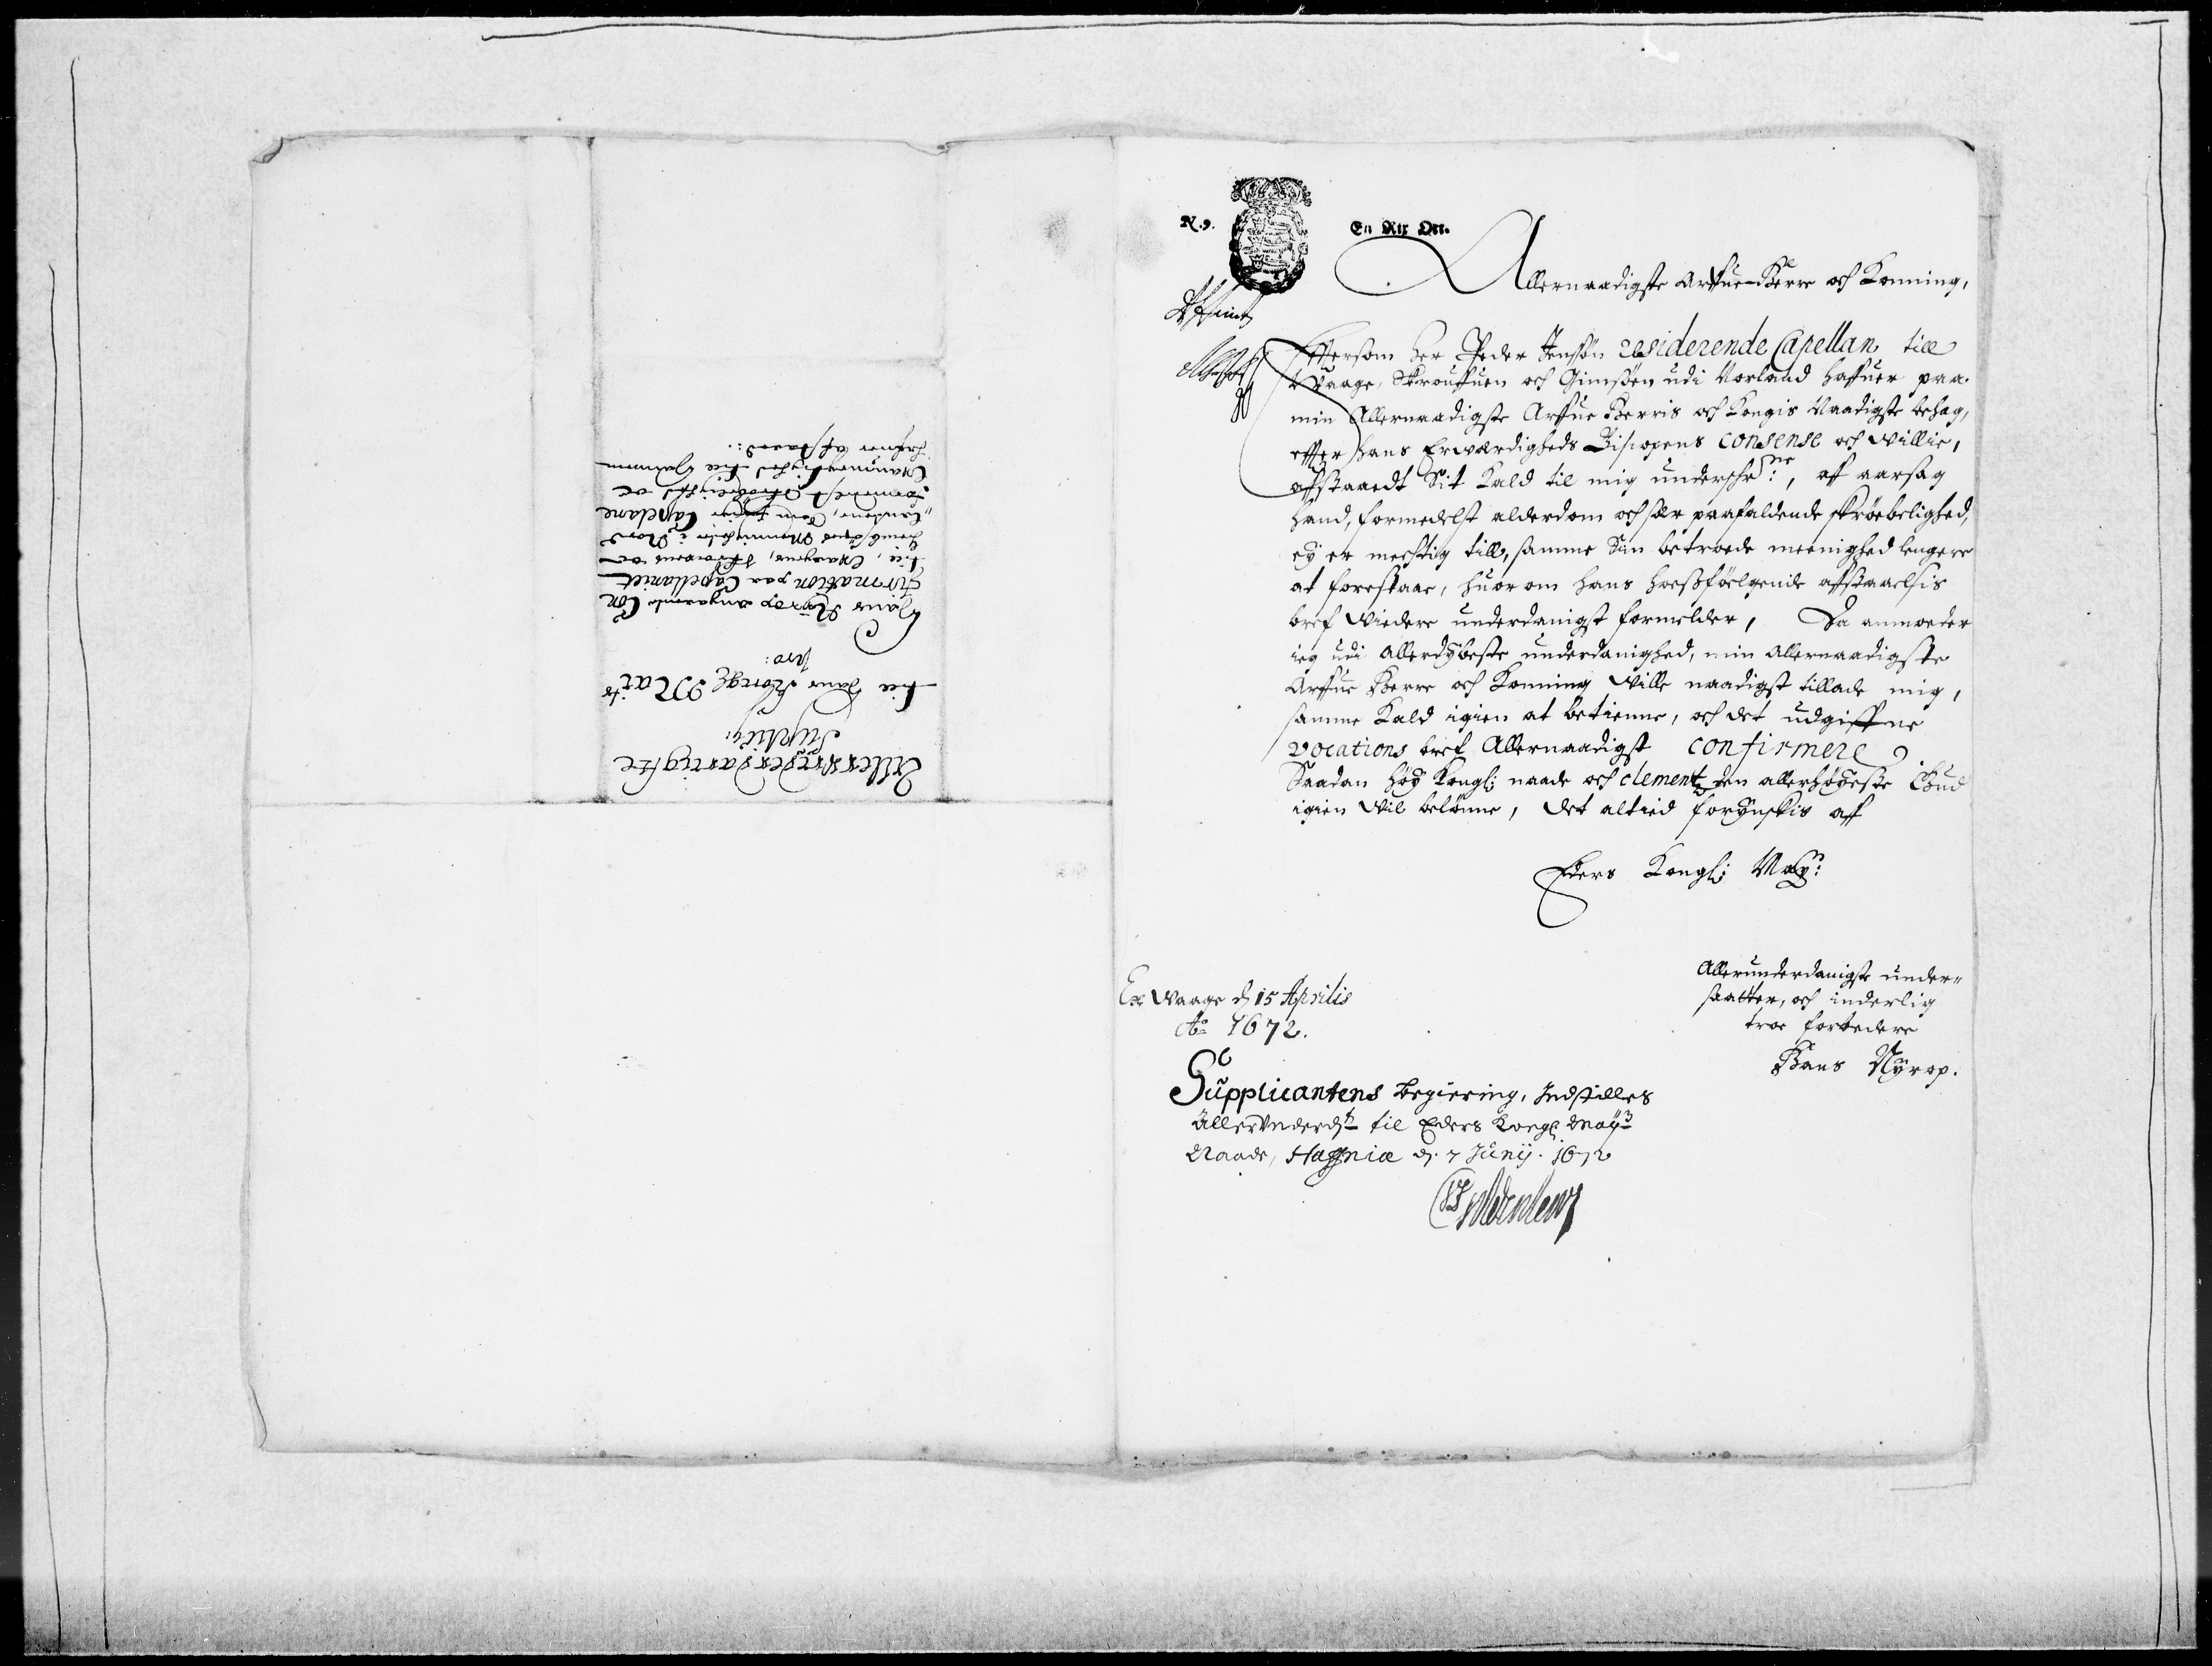 N. 9.
En Rix Ort.
Allernaadigste Arffue-Herre och Konning,
Effterson Her Peder Jenssøn residerende Capellan till
Waage, Skrouffuen och Gimsøen udi Norland haffuer paa
min Allernaadigste Arffue Herris och Kongis Naadigste behag,
effter hans Erværdigheds Bispens consense och villie,
affstaaedt Sit Kald til mig underschr:ne, aff aarsag
hand, formedelst alderdom och paafaldende skrøbelighed,
ey er mechtig till, samme Sin betroede meenighed lengere
at forestaae, huorom hans hoesføelgende affstaaelsis
bref widere underdanigst formelder, Da anmoder
ieg udi Allerdybeste underdanighed, min Allernaadigste
Arffue Herre och Konning ville naadigst tillade mig,
samme Kald igien at betienne, och det udgiffne
vocations bref Allernaadigst confirmere
Saadan høy Kongl: naade och clementz den allerhøyeste Gud
igien vil belønne, det altied forynskis aff
Eders Kongl: May:
Allerunderdanigste under-
saatter, och inderlig
troe forbedere
Hans Nyrop.
Ex Waage d 15 Aprilis
Ao 1672.
Supplicantens begiering, Indstilles
allerunderdt til Eders Kongl May
Naade, Haffniæ d. 7 Junij. 1672
Gyldenlew
Allerunderdanigste
Supliqu
till Hans Kongl Maits
fra:
Hans Nyrop angaaende Con
firmation paa Capellaniet
till, Waagens, Skrovens oc
Gimsøens Menninheder i Nord
landene, som Capelane
formedelst skrøbelighed oc
till hannem
hafuer afstaaed: